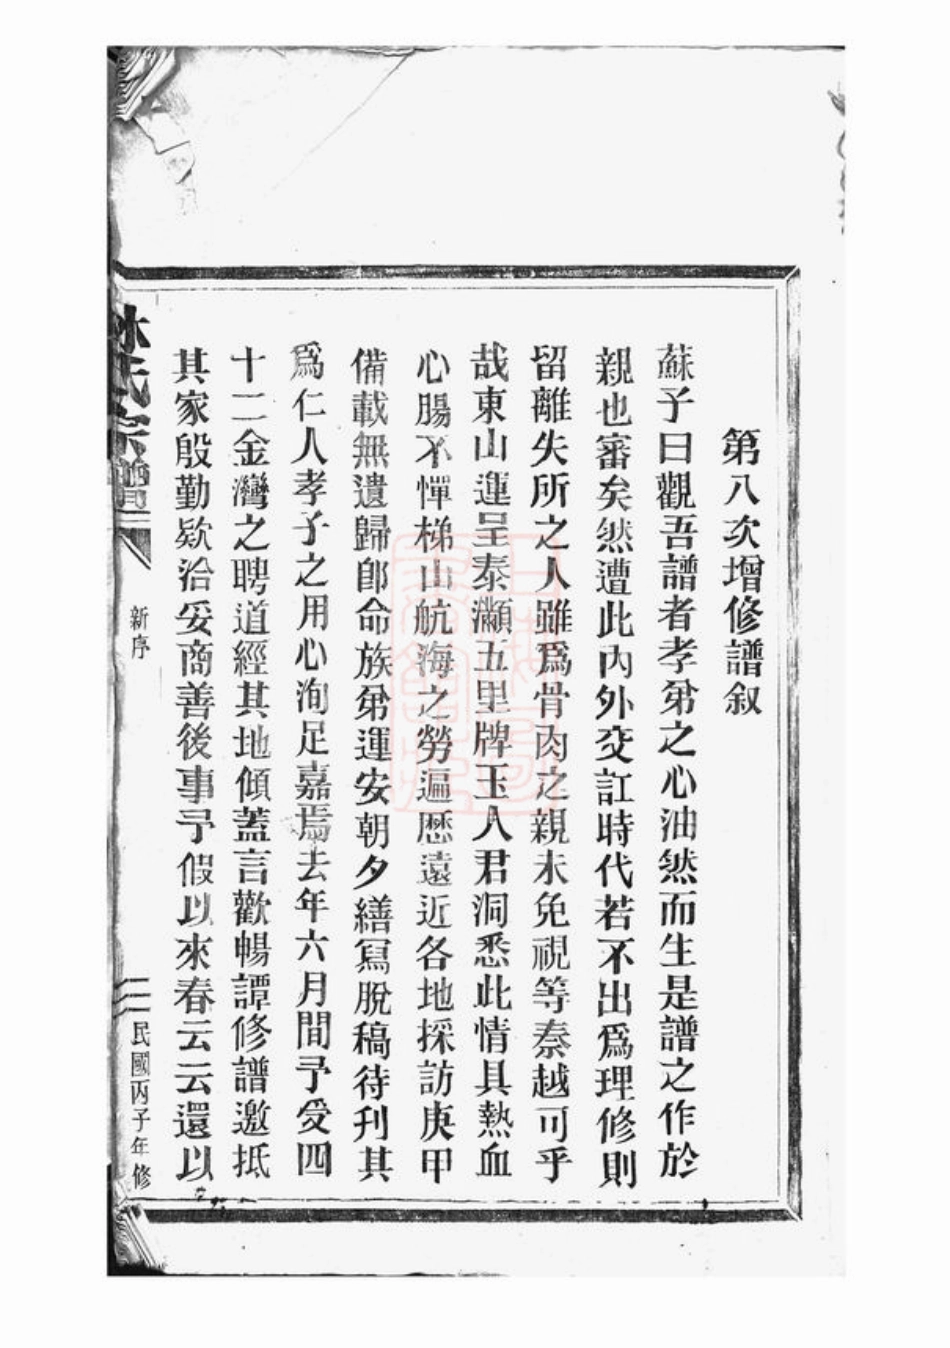 第八次增修譜叙
蘇子曰觀吾譜者孝弟之心油然而生是譜之作於
親也審矣然遭此內外交訌時代若不出爲理修則
留離失所之人雖爲骨肉之親未免視等秦越可乎
哉東山運呈泰瀨五里牌玉人君洞悉此情具熱血
心腸不憚梯山航海之勞遍歷遠近各地採訪庚甲
備載無遺歸卽命族弟運安朝夕繕寫脫稿待刋其
爲仁人孝子之用心洵足嘉焉去年六月間予受四
十二金灣之聘道經其地傾蓋言歡暢譚修譜邀抵
其家殷勤欵洽妥商善後事予假以來春云云還以
林氏宗譜
新序
三
民國丙子年修